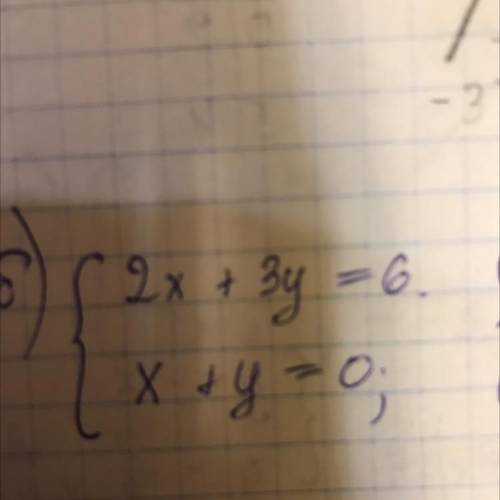 -3
б) { 2x + 3y = 6.
x + y = 0;